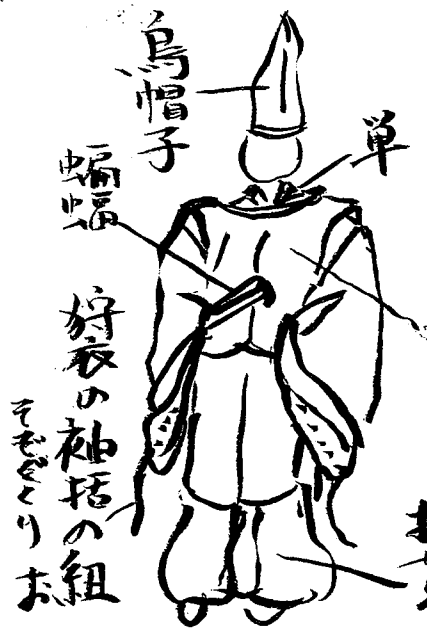 烏帽子
単
蝙蝠
狩衣の袖括の組
そでぐくりお